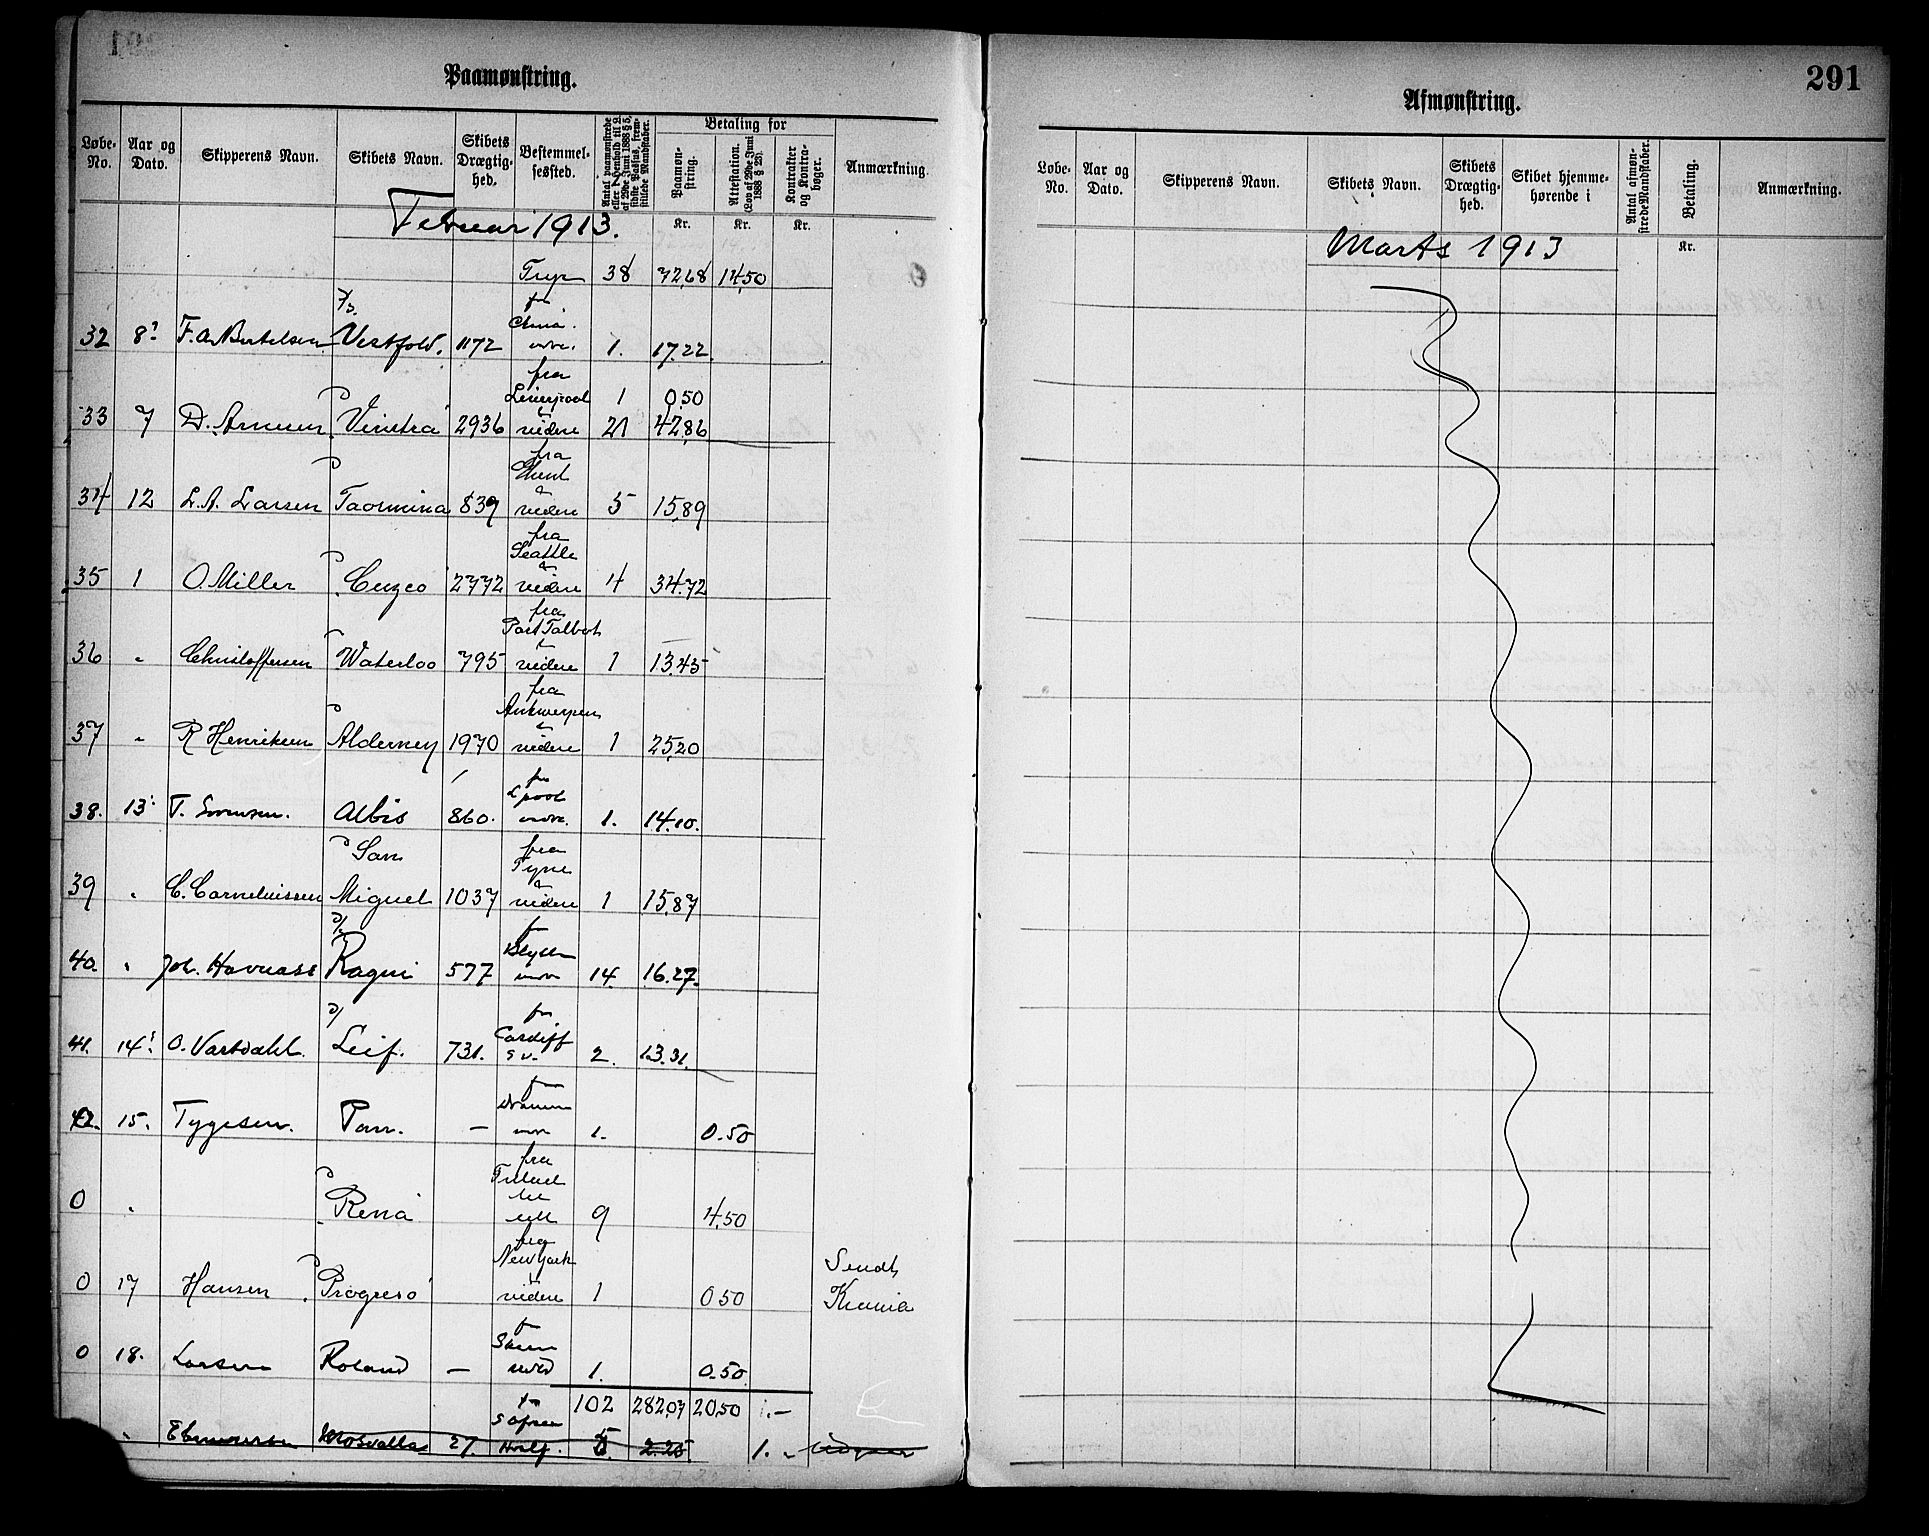 Paamønstring.
Løbe-No. Aar og Dato. Skipperens Navn. Skibets Navn. Skibets Drægtighed. Bestemmelsessted. Antal paamønstrede eller i Henhold til L. af 29de Juni 1888 § 5, sidste Passus, fremstillede Mandskaber. Betaling for Paamønstring. Attestation. (Lov af 29de Juni 1888 § 23). Kontrakter og Kontrabøger. Anmærkning.
Februar 1913. Kr. Kr. Kr.
38 72,68 14,50
32 8 F. A. Bertelsen Vestfold. 1172 1. 17.22
fra Liverpool 1 0,50
33 7 D. Arnesen Vinstra 2936 videre 21 42,86
fra Ghent
34 12 L. A. Larsen Taormina 839 videre 5 15,89
fra Seattle
35 1 O. Miller Cuzco 2772 videre 4 34.72
fra Port Talbot
36 " Christoffersen Waterloo 795 videre 1 13.45
fra Antwerpen
37 " R Henriksen Alderney 1970 videre 1 25,20
fra Lpool
38. 13 T. Sørensen. Albis 860. 1. 14.10.
San fra Tyne
39 " C. Corneliussen Miguel 1037 videre 1 15,87
fr Blyth
40. " Joh. Hovnass Ragni 577 14 16.27.
fr Cardiff
41. 14 O. Vartdahl. Leif. 731. 2. 13.31.
42. 15. Tygesen. Pan. — 1. 0.50
fra
0 " Rena 9 4,50
fra New York
0 17 Hansen Progreso videre 1 0,50 Sendt Krania
0 18. Larsen Roland — 1. 0.50
102 282,07 20,50 1.—
" Mosvalla 27. 2.25 1. "
291
Afmønstring.
Løbe-No. Aar og Dato. Skipperens Navn. Skibets Navn. Skibets Drægtighed. Skibet hjemmehørende i Antal afmønstrede Mandskaber. Betaling. Anmærkning.
Marts 1913 Kr.